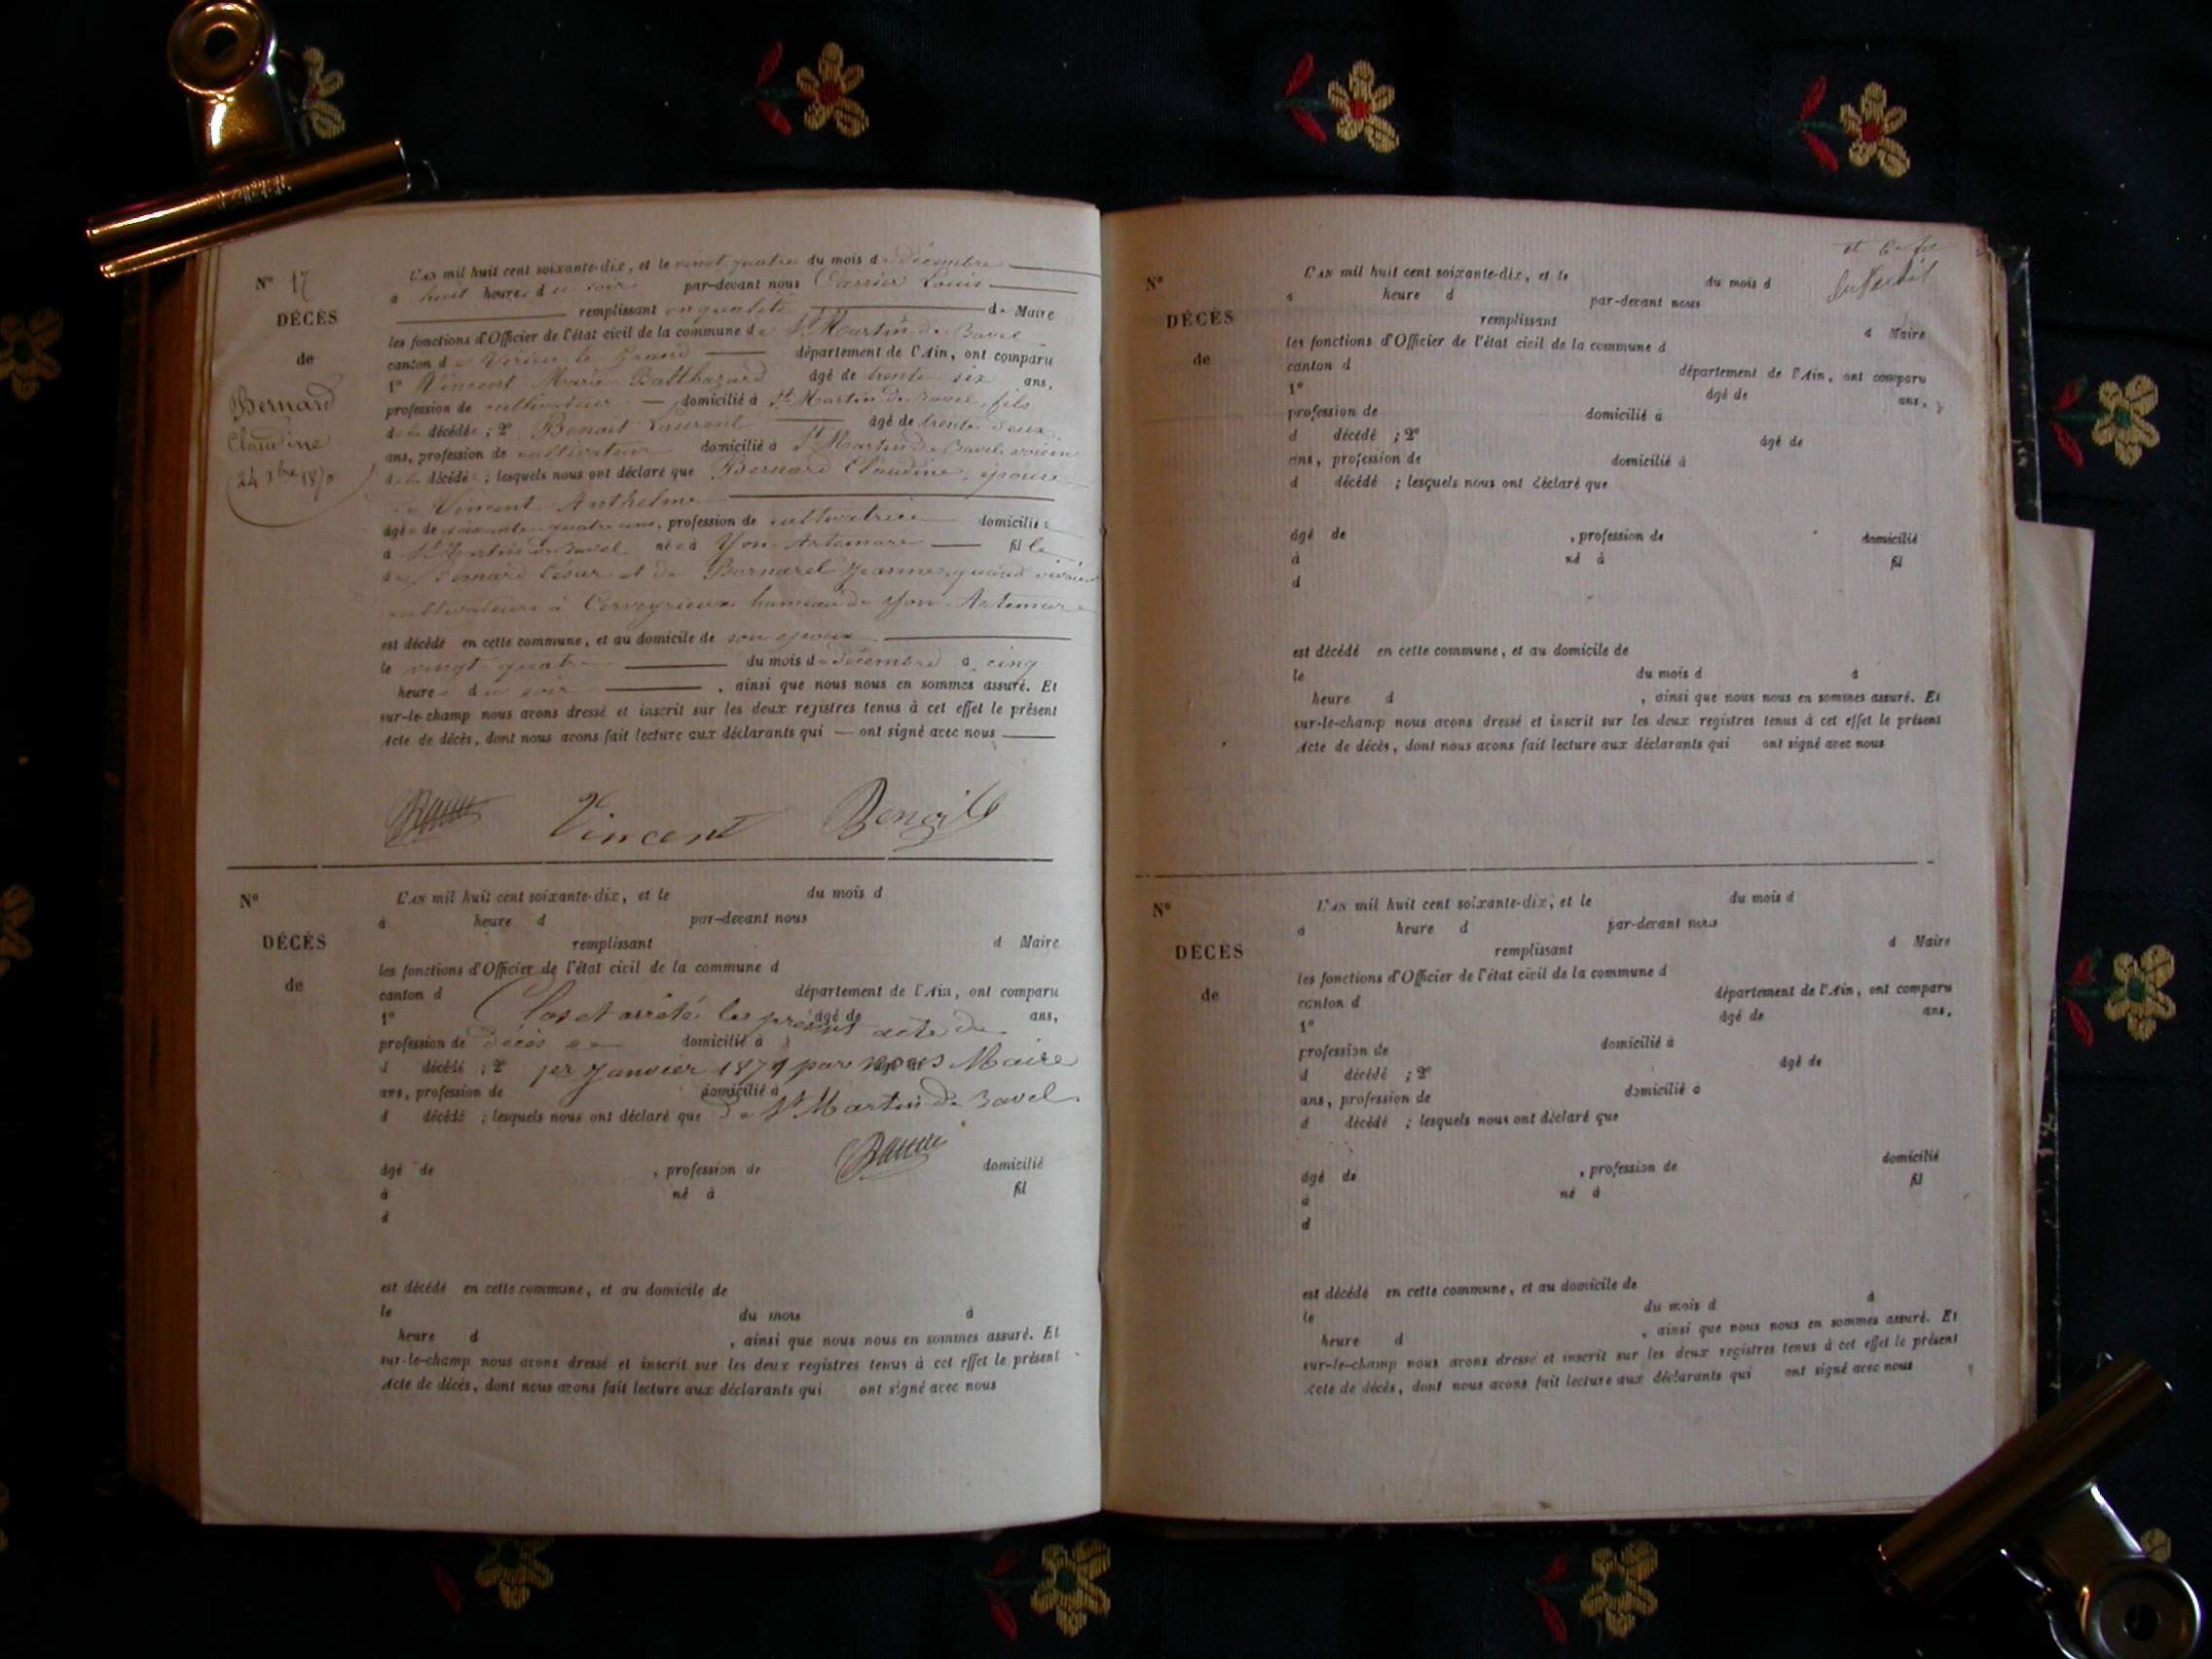 N° 17
DÉCÈS
de
Bernard
Claudine
24 Xbre 1870
L'AN mil huit cent soixante-dix, et le vingt quatre du mois de décembre
à huit heures du soir par-devant nous Carrier Louis
remplissant en qualité de Maire
les fonctions d'Officier de l'état civil de la commune de St Martin de Bavel
canton de Virieu le Grand département de l'Ain, ont comparu
1° Vincent Marie Balthazard âgé de trente six ans,
profession de cultivateur domicilié à St Martin de Bavel, fils
de la décédée ; 2° Benoit Laurent âgé de trente deux
ans, profession de cultivateur domicilié à St Martin de Bavel, voisin
de la décédée ; lesquels nous ont déclaré que Bernard Claudine, épouse
de Vincent Anthelme
âgée de soixante quatre ans, profession de cultivatrice domiciliée
à St Martin de Bavel née à Yon Artemare fille
de Bernard César et de Bornarel Jeanne, quand
cultivateurs à Cerveyrieux hameau de Yon Artemare
est décédé en cette commune, et au domicile de son époux
le vingt quatre du mois de décembre à cinq
heures du soir , ainsi que nous nous en sommes assuré. Et
sur-le-champ nous avons dressé et inscrit sur les deux registres tenus à cet effet le présent
Acte de décès, dont nous avons fait lecture aux déclarants qui — ont signé avec nous
Vincent Benoit
N°
DÉCÈS
de
L'AN mil huit cent soixante-dix, et le du mois d
à heure d par-devant nous
remplissant d Maire
les fonctions d'Officier de l'état civil de la commune d
canton d département de l'Ain, ont comparu
1° âgé de ans,
Clos et arrêté les présent acte de
profession de domicilié à
décès ce
d décédé ; 2° âgé de
1er Janvier 1871 par nous Maire
ans, profession de domicilié à
d décédé ; lesquels nous ont déclaré que
de St Martin de Bavel
âgé de , profession de domicilié
à né à fil
d
est décédé en cette commune, et au domicile de
le du mois à
heure d , ainsi que nous nous en sommes assuré. Et
sur-le-champ nous avons dressé et inscrit sur les deux registres tenus à cet effet le présent
Acte de décès, dont nous avons fait lecture aux déclarants qui ont signé avec nous
N°
DÉCÈS
de
L'AN mil huit cent soixante-dix, et le du mois d
à heure d par-devant nous
remplissant d Maire
les fonctions d'Officier de l'état civil de la commune d
canton d département de l'Ain, ont comparu
1° âgé de ans,
profession de domicilié à
d décédé ; 2° âgé de
ans, profession de domicilié à
d décédé ; lesquels nous ont déclaré que
âgé de , profession de domicilié
à né à fil
d
est décédé en cette commune, et au domicile de
le du mois d à
heure d , ainsi que nous nous en sommes assuré. Et
sur-le-champ nous avons dressé et inscrit sur les deux registres tenus à cet effet le présent
Acte de décès, dont nous avons fait lecture aux déclarants qui ont signé avec nous
N°
DÉCÈS
de
L'AN mil huit cent soixante-dix, et le du mois d
à heure d par-devant nous
remplissant d Maire
les fonctions d'Officier de l'état civil de la commune d
canton d département de l'Ain, ont comparu
1° âgé de ans,
profession de domicilié à
d décédé ; 2° âgé de
ans, profession de domicilié à
d décédé ; lesquels nous ont déclaré que
âgé de , profession de domicilié
à né à fil
d
est décédé en cette commune, et au domicile de
le du mois d à
heure d , ainsi que nous nous en sommes assuré. Et
sur-le-champ nous avons dressé et inscrit sur les deux registres tenus à cet effet le présent
Acte de décès, dont nous avons fait lecture aux déclarants qui ont signé avec nous